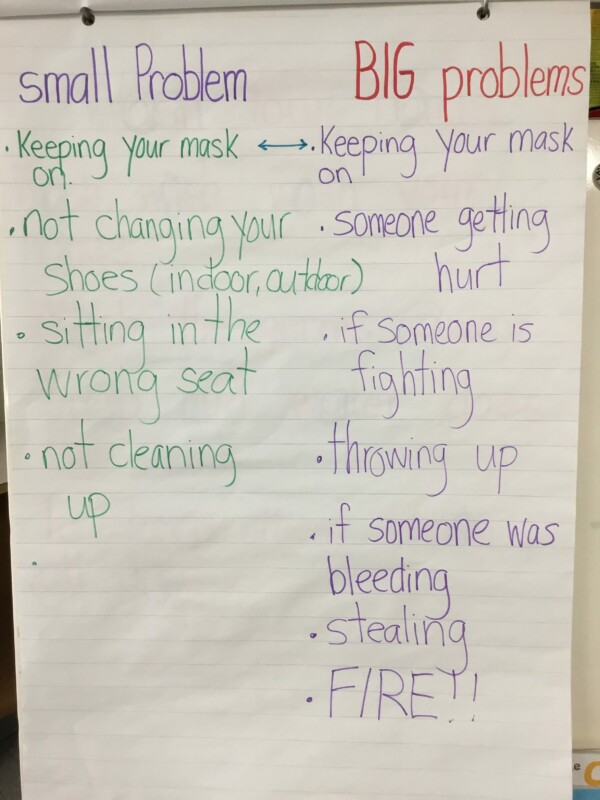 small Problem
· Keeping your mask
on.
· not changing your
Shoes (indoor, outdoor)
· sitting in the
wrong seat
· not cleaning
up
·
BIG problems
· Keeping your mask
on
· someone getting
hurt
· if someone is
fighting
· throwing up
· if someone was
bleeding
· stealing
· FIRE!!